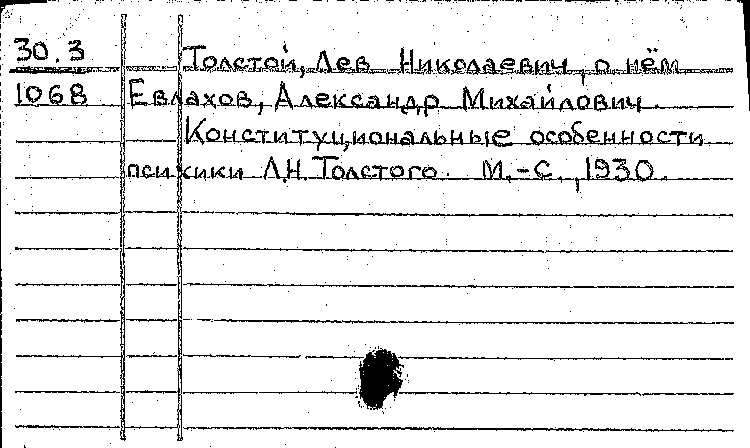 30.3 Толстой, Лев Николаевич, о нём
1068 Евлахов, Александр Михайлович.
Конституциональные особенности
психики Л.Н. Толстого. М.-С., 1930.